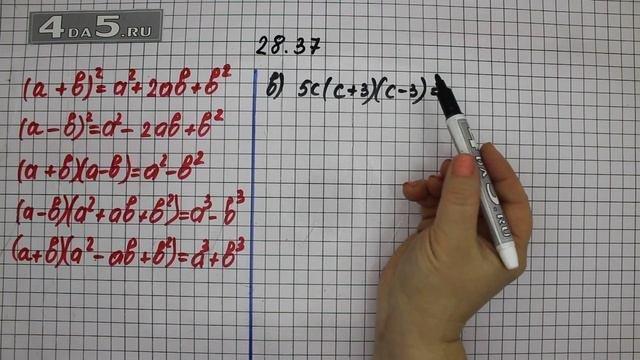 4DA5.RU
28.37
(a + b)² = a² + 2ab + b²
(a - b)² = a² - 2ab + b²
(a + b)(a - b) = a² - b²
(a - b)(a² + ab + b²) = a³ - b³
(a + b)(a² - ab + b²) = a³ + b³
в) 5c(c+3)(c-3) =